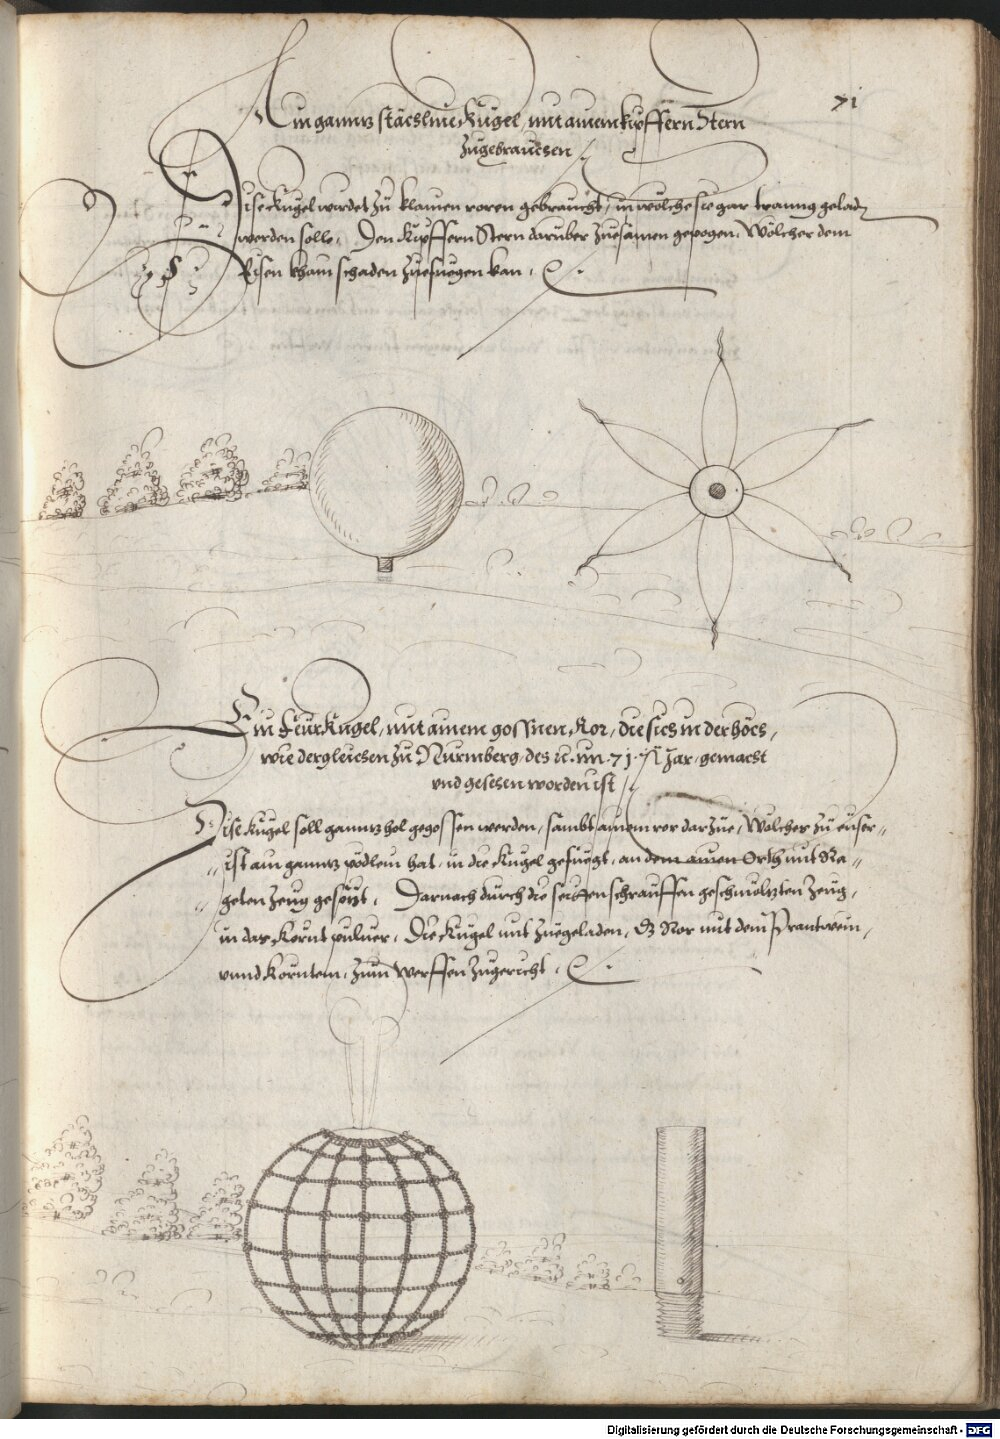 71
Ain gannz stächline Kugel, mit ainem kupffern Stern
zugebrauchen
Dise Kugel wirdet zu klainen roren gebraucht, in wölche sie gar tranng gelad
werden solle, Den Kupffern Stern darüber zuesamen gepogen, Wölcher dem
Eisen khain schaden zuefuegen kan,
Ein Feür Kugel, mit ainem gossnen Ror, die sich in der höch,
wie dergleichen zu Nurmberg, des im 71. Jar, gemacht
vnd gesehen worden ist
Dise Kugel soll gannz hol gegossen werden, sambt ainem ror darzue, Wölcher zu eüser-
ist ain gannz pödlein hat, in die Kugel gefüegt, an dem ainen Orth mit Ra-
geten Zeug gesetzt, Darnach durch die seitten schrauffen geschmoltzten Zeug,
in dar Kornt puluer, Die Kugel mit zuegeladen, Das Ror mit dem Prantwein,
vnnd Korntem, zum werffen zugericht,
Digitalisierung gefördert durch die Deutsche Forschungsgemeinschaft - DFG